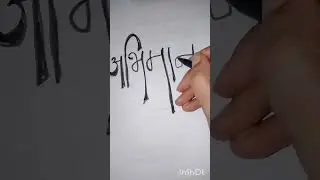 अभिमान
InShOt